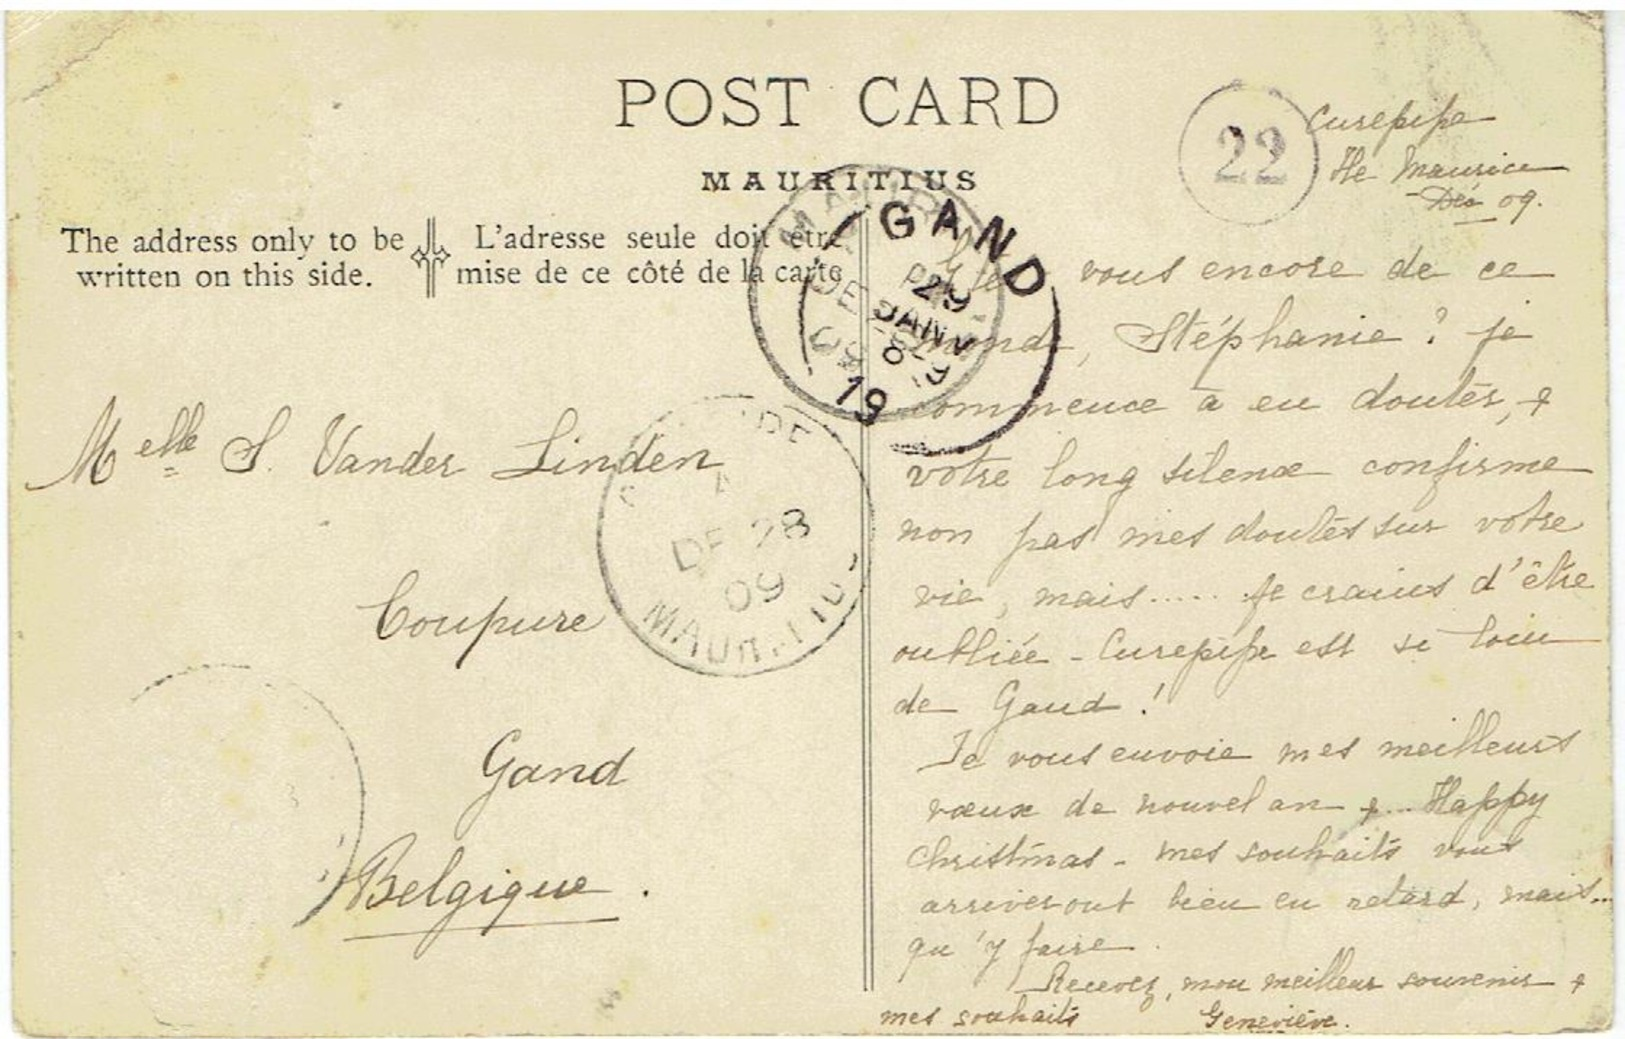 POST CARD
MAURITIUS
The address only to be
written on this side.
L'adresse seule doit être
mise de ce côté de la carte
22
GAND
29
JANV
8-9
19
DE 28
09
MAURITIUS
Melle S. Vander Linden
Coupure
Gand
Belgique.
Curepipe
Ile Maurice
Déc 09.
vous encore de ce
monde, Stéphanie? je
commence à en douter, &
votre long silence confirme
non pas mes doutes sur votre
vie, mais..... je crains d'être
oubliée - Curepipe est si loin
de Gand!
Je vous envoie mes meilleurs
vœux de nouvel an &... Happy
Christmas - mes souhaits vous
arriveront bien en retard, mais...
qu'y faire.
Recevez, mon meilleur souvenir &
mes souhaits
Geneviève.